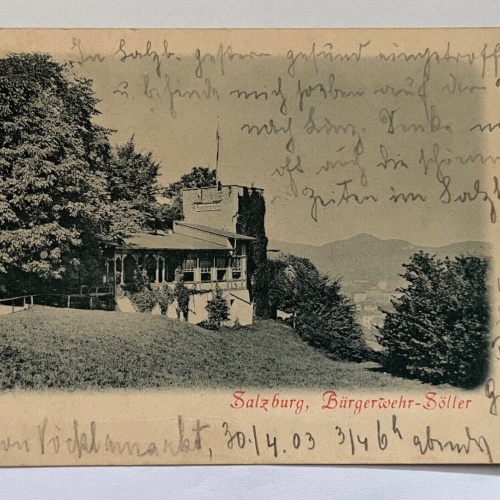 In Salzb. gestern gesund eingetroff
u. befinde mich soeben auf der
nach Linz. Denke
oft auch die schönen
Zeiten im Salzb
Salzburg, Bürgerwehr-Söller
von Vöcklamarkt, 30./4.03 3/4 6h abends